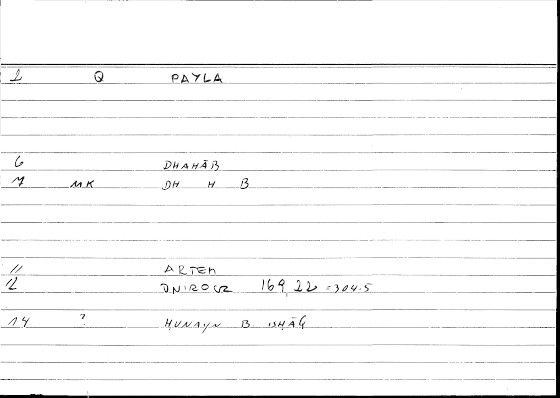 1 Q PAYLA
6 DHAHĀB
7 MK DH H B
11 ARTEM
12 169, 22 = 304.5
14 ? HUNAYN B. ISHĀQ